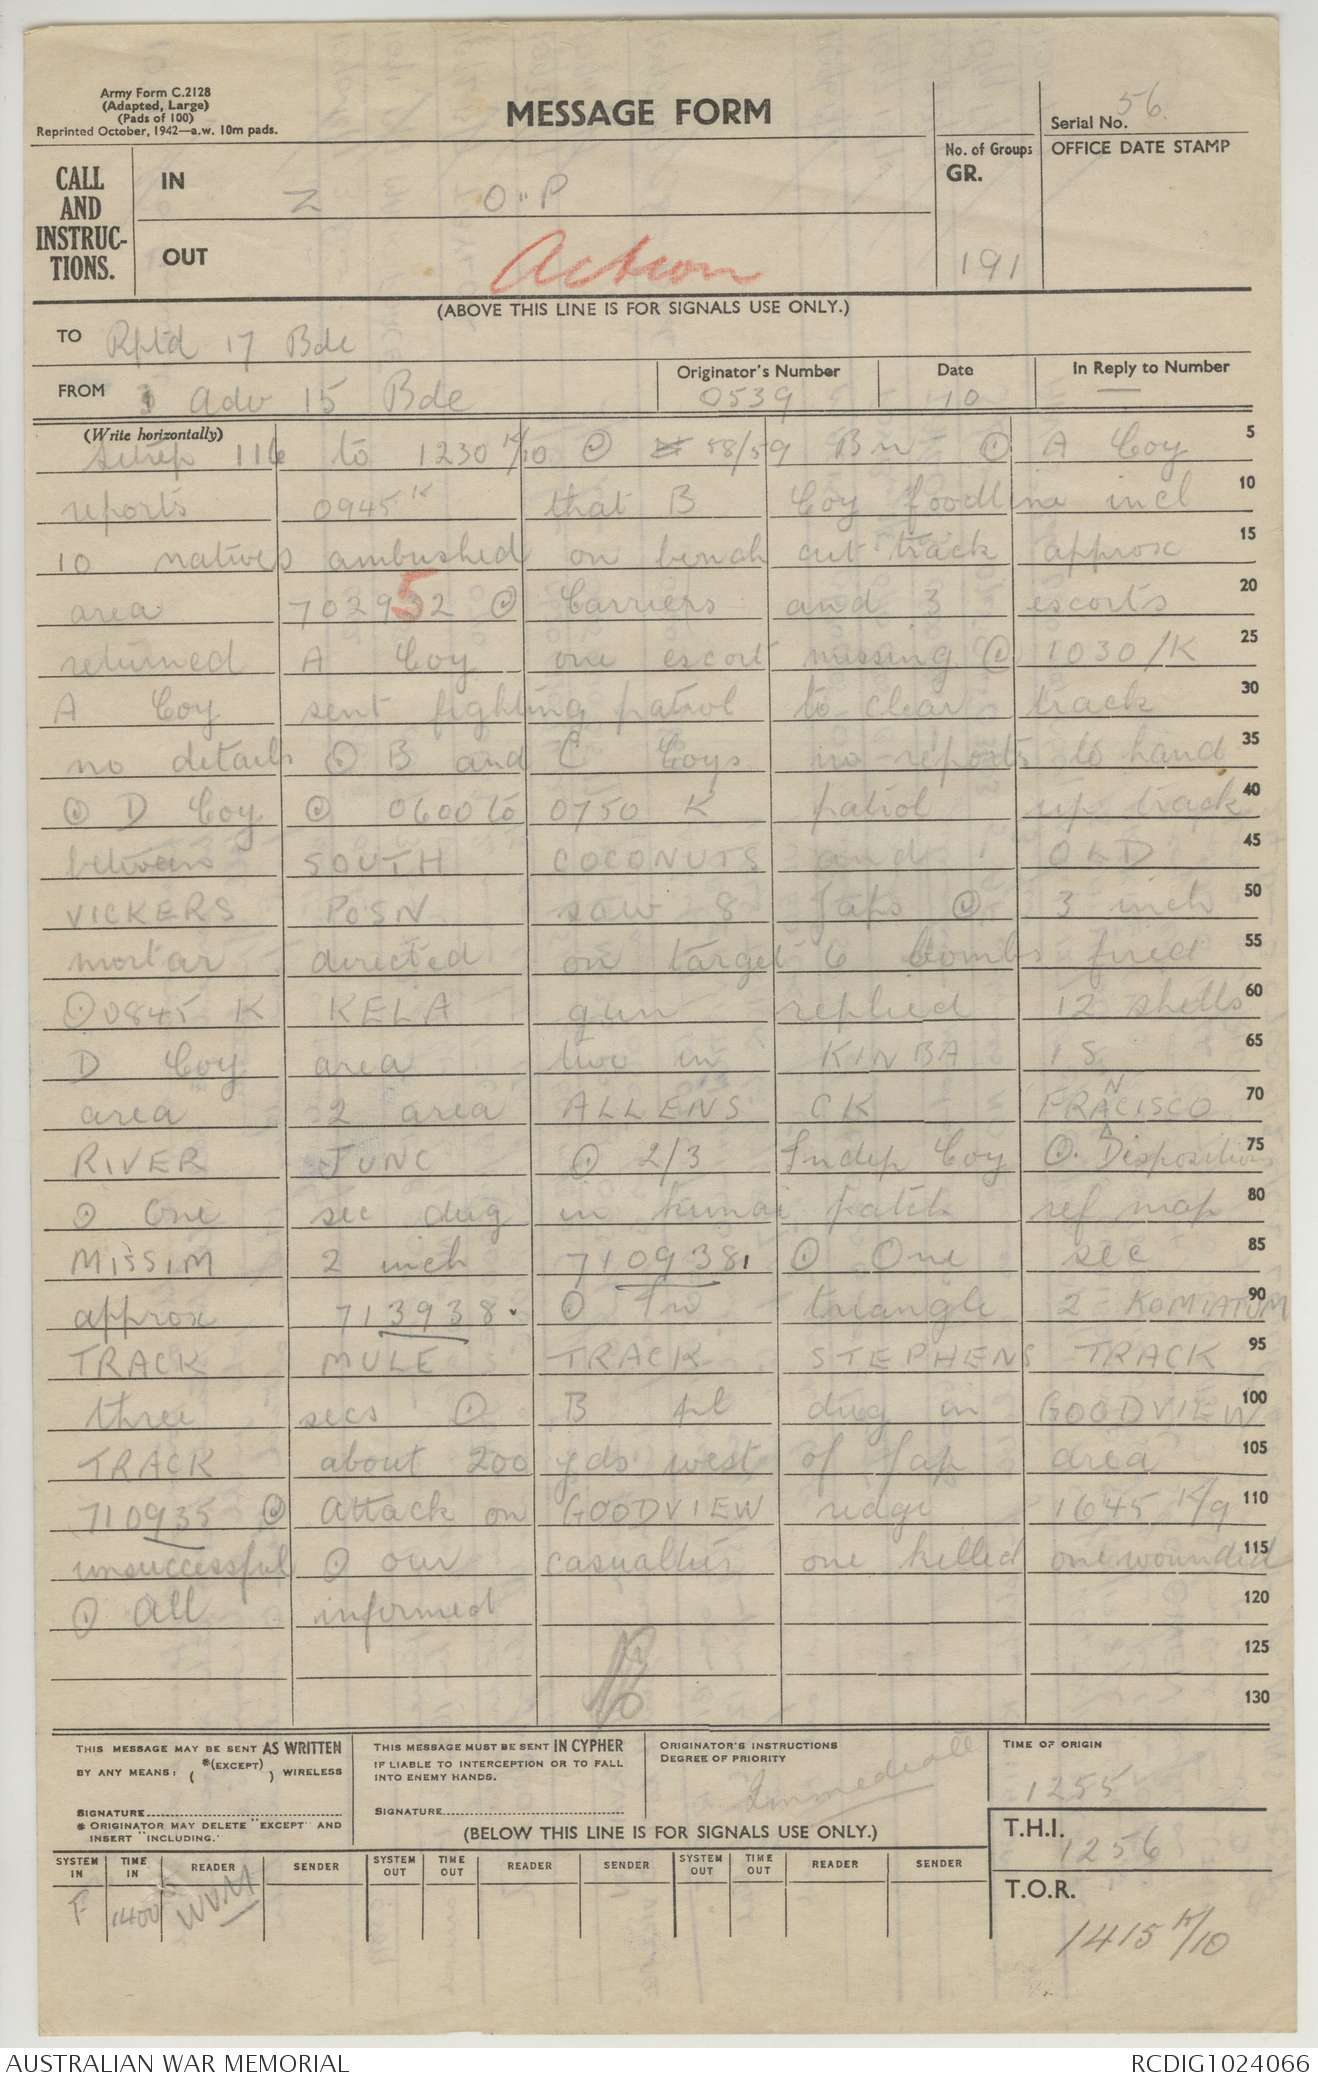 Army Form C.2128
(Adapted, Large)
(Pads of 100)
Reprinted October, 1942—a.w. 10m pads.
MESSAGE FORM
Serial No. 56.
No. of Groups
GR.
191
OFFICE DATE STAMP
CALL
AND
INSTRUC-
TIONS.
IN
Z O"P
OUT
Action
(ABOVE THIS LINE IS FOR SIGNALS USE ONLY.)
TO Rptd 17 Bde
FROM Adv 15 Bde
Originator's Number
0539
Date
10
In Reply to Number
—
(Write horizontally)
sitrep 116 to 1230 K/10 ⊙ 58/59 Bn ⊙ A Coy 5
reports 0945 K that B Coy foodline incl 10
10 natives ambushed on bench cut track approx 15
area 702952 ⊙ Carriers and 3 escorts 20
returned A Coy one escort missing ⊙ 1030/K 25
A Coy sent fighting patrol to clear track 30
no details ⊙ B and C Coys no reports to hand 35
⊙ D Coy ⊙ 0600 to 0750 K patrol up track 40
between SOUTH COCONUTS and OLD 45
VICKERS POSN saw 8 Japs ⊙ 3 inch 50
mortar directed on target 6 bombs fired 55
⊙ 0845 K KELA gun replied 12 shells 60
D Coy area two in KINBA 18 65
area 2 area ALLENS CK FRANCISCO 70
RIVER JUNC ⊙ 2/3 Indep Coy ⊙ Dispositions 75
⊙ One sec dug in kunai patch ref map 80
MISSIM 2 inch 710938 ⊙ One sec 85
approx 713938 ⊙ In triangle 2 KOMIATUM 90
TRACK MULE TRACK STEPHENS TRACK 95
three secs ⊙ B pl dug in GOODVIEW 100
TRACK about 200 yds west of Jap area 105
710935 ⊙ Attack on GOODVIEW ridge 1645 K/9 110
unsuccessful ⊙ our casualties one killed one wounded 115
⊙ All informed 120
125
130
THIS MESSAGE MAY BE SENT AS WRITTEN
BY ANY MEANS: ( *(EXCEPT) ) WIRELESS
SIGNATURE
* ORIGINATOR MAY DELETE "EXCEPT" AND
INSERT "INCLUDING."
THIS MESSAGE MUST BE SENT IN CYPHER
IF LIABLE TO INTERCEPTION OR TO FALL
INTO ENEMY HANDS.
SIGNATURE
ORIGINATOR'S INSTRUCTIONS
DEGREE OF PRIORITY
Immediate all
TIME OF ORIGIN
1255
(BELOW THIS LINE IS FOR SIGNALS USE ONLY.)
T.H.I.
1256
T.O.R.
1415 K/10
SYSTEM IN TIME IN READER SENDER SYSTEM OUT TIME OUT READER SENDER SYSTEM OUT TIME OUT READER SENDER
F 1400 WVM
AUSTRALIAN WAR MEMORIAL RCDIG1024066